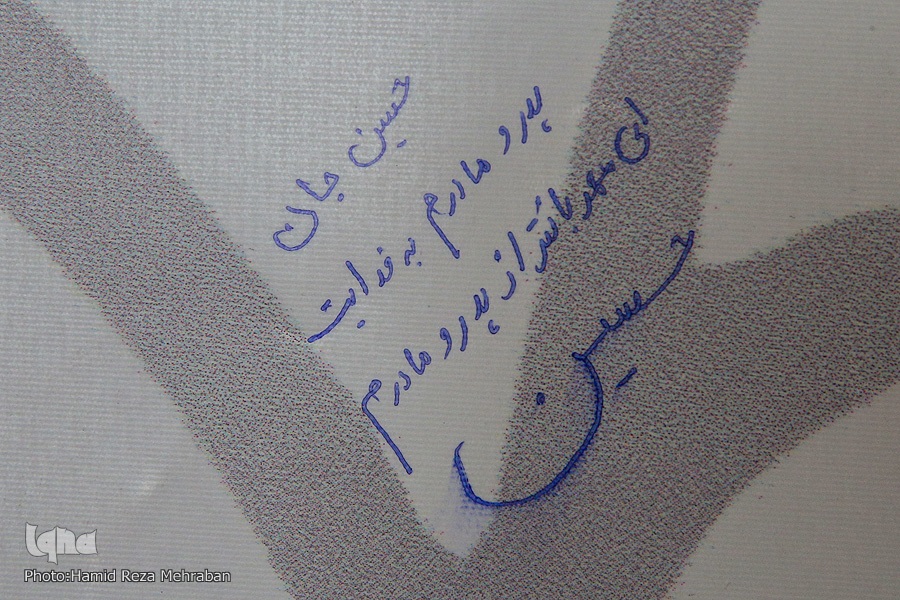 حسین جان
پدر و مادرم به فدایت
ای مهربانتر از پدر و مادرم
حسین
iqna
Photo:Hamid Reza Mehraban